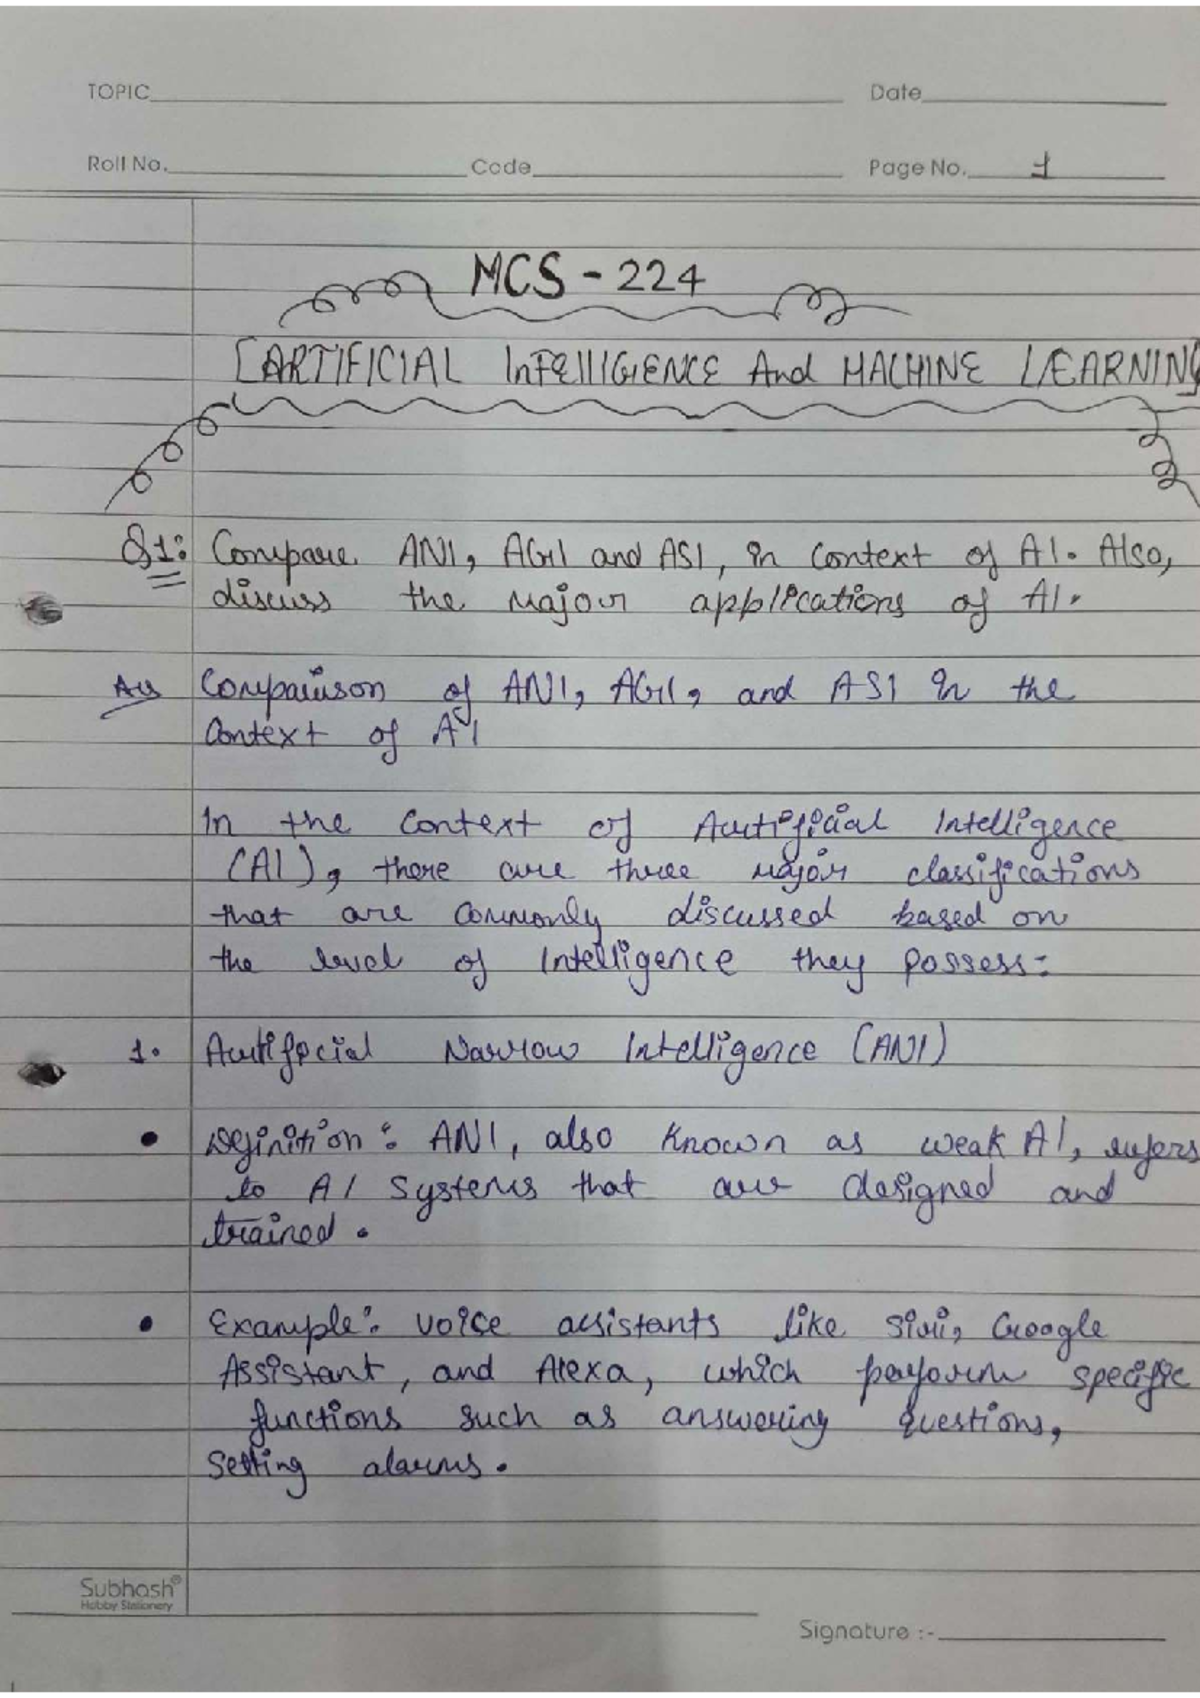 TOPIC Date
Roll No. Code Page No. 1
MCS - 224
[ARTIFICIAL INTEllIGENCE And MACHINE LEARNING]
Q1: Compare ANI, AGI and ASI, in context of AI. Also,
discuss the major applications of AI.
Ans Comparison of ANI, AGI, and ASI in the
Context of AI
In the context of Artificial Intelligence
(AI), there are three major classifications
that are commonly discussed based on
the level of Intelligence they possess:
1. Artificial Narrow Intelligence (ANI)
• Definition: ANI, also known as weak AI, refers
to AI systems that are designed and
trained.
• Example: voice assistants like Siri, Google
Assistant, and Alexa, which perform specific
functions such as answering questions,
setting alarms.
Subhash®
Hobby Stationery
Signature :-